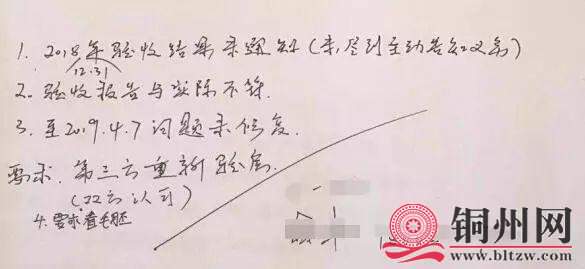 1. 2018年验收结果未通知(未尽到主动告知义务)
(12.31)
2. 验收报告与实际不符.
3. 至2019.4.7问题未修复.
要求. 第三方重新验房.
(双方认可)
4. 要求看毛胚
铜州网
www.bltzw.com